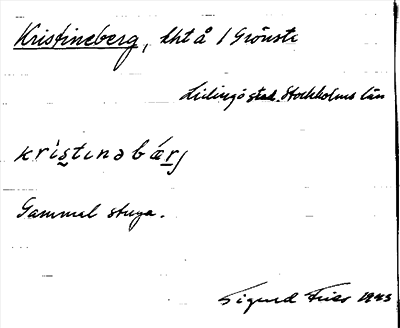 Kristineberg, lht å 1 Grönsta
Lidingö stad. Stockholms län
krìstɩnəbárj
Gammal stuga.
Sigurd Fries 1943